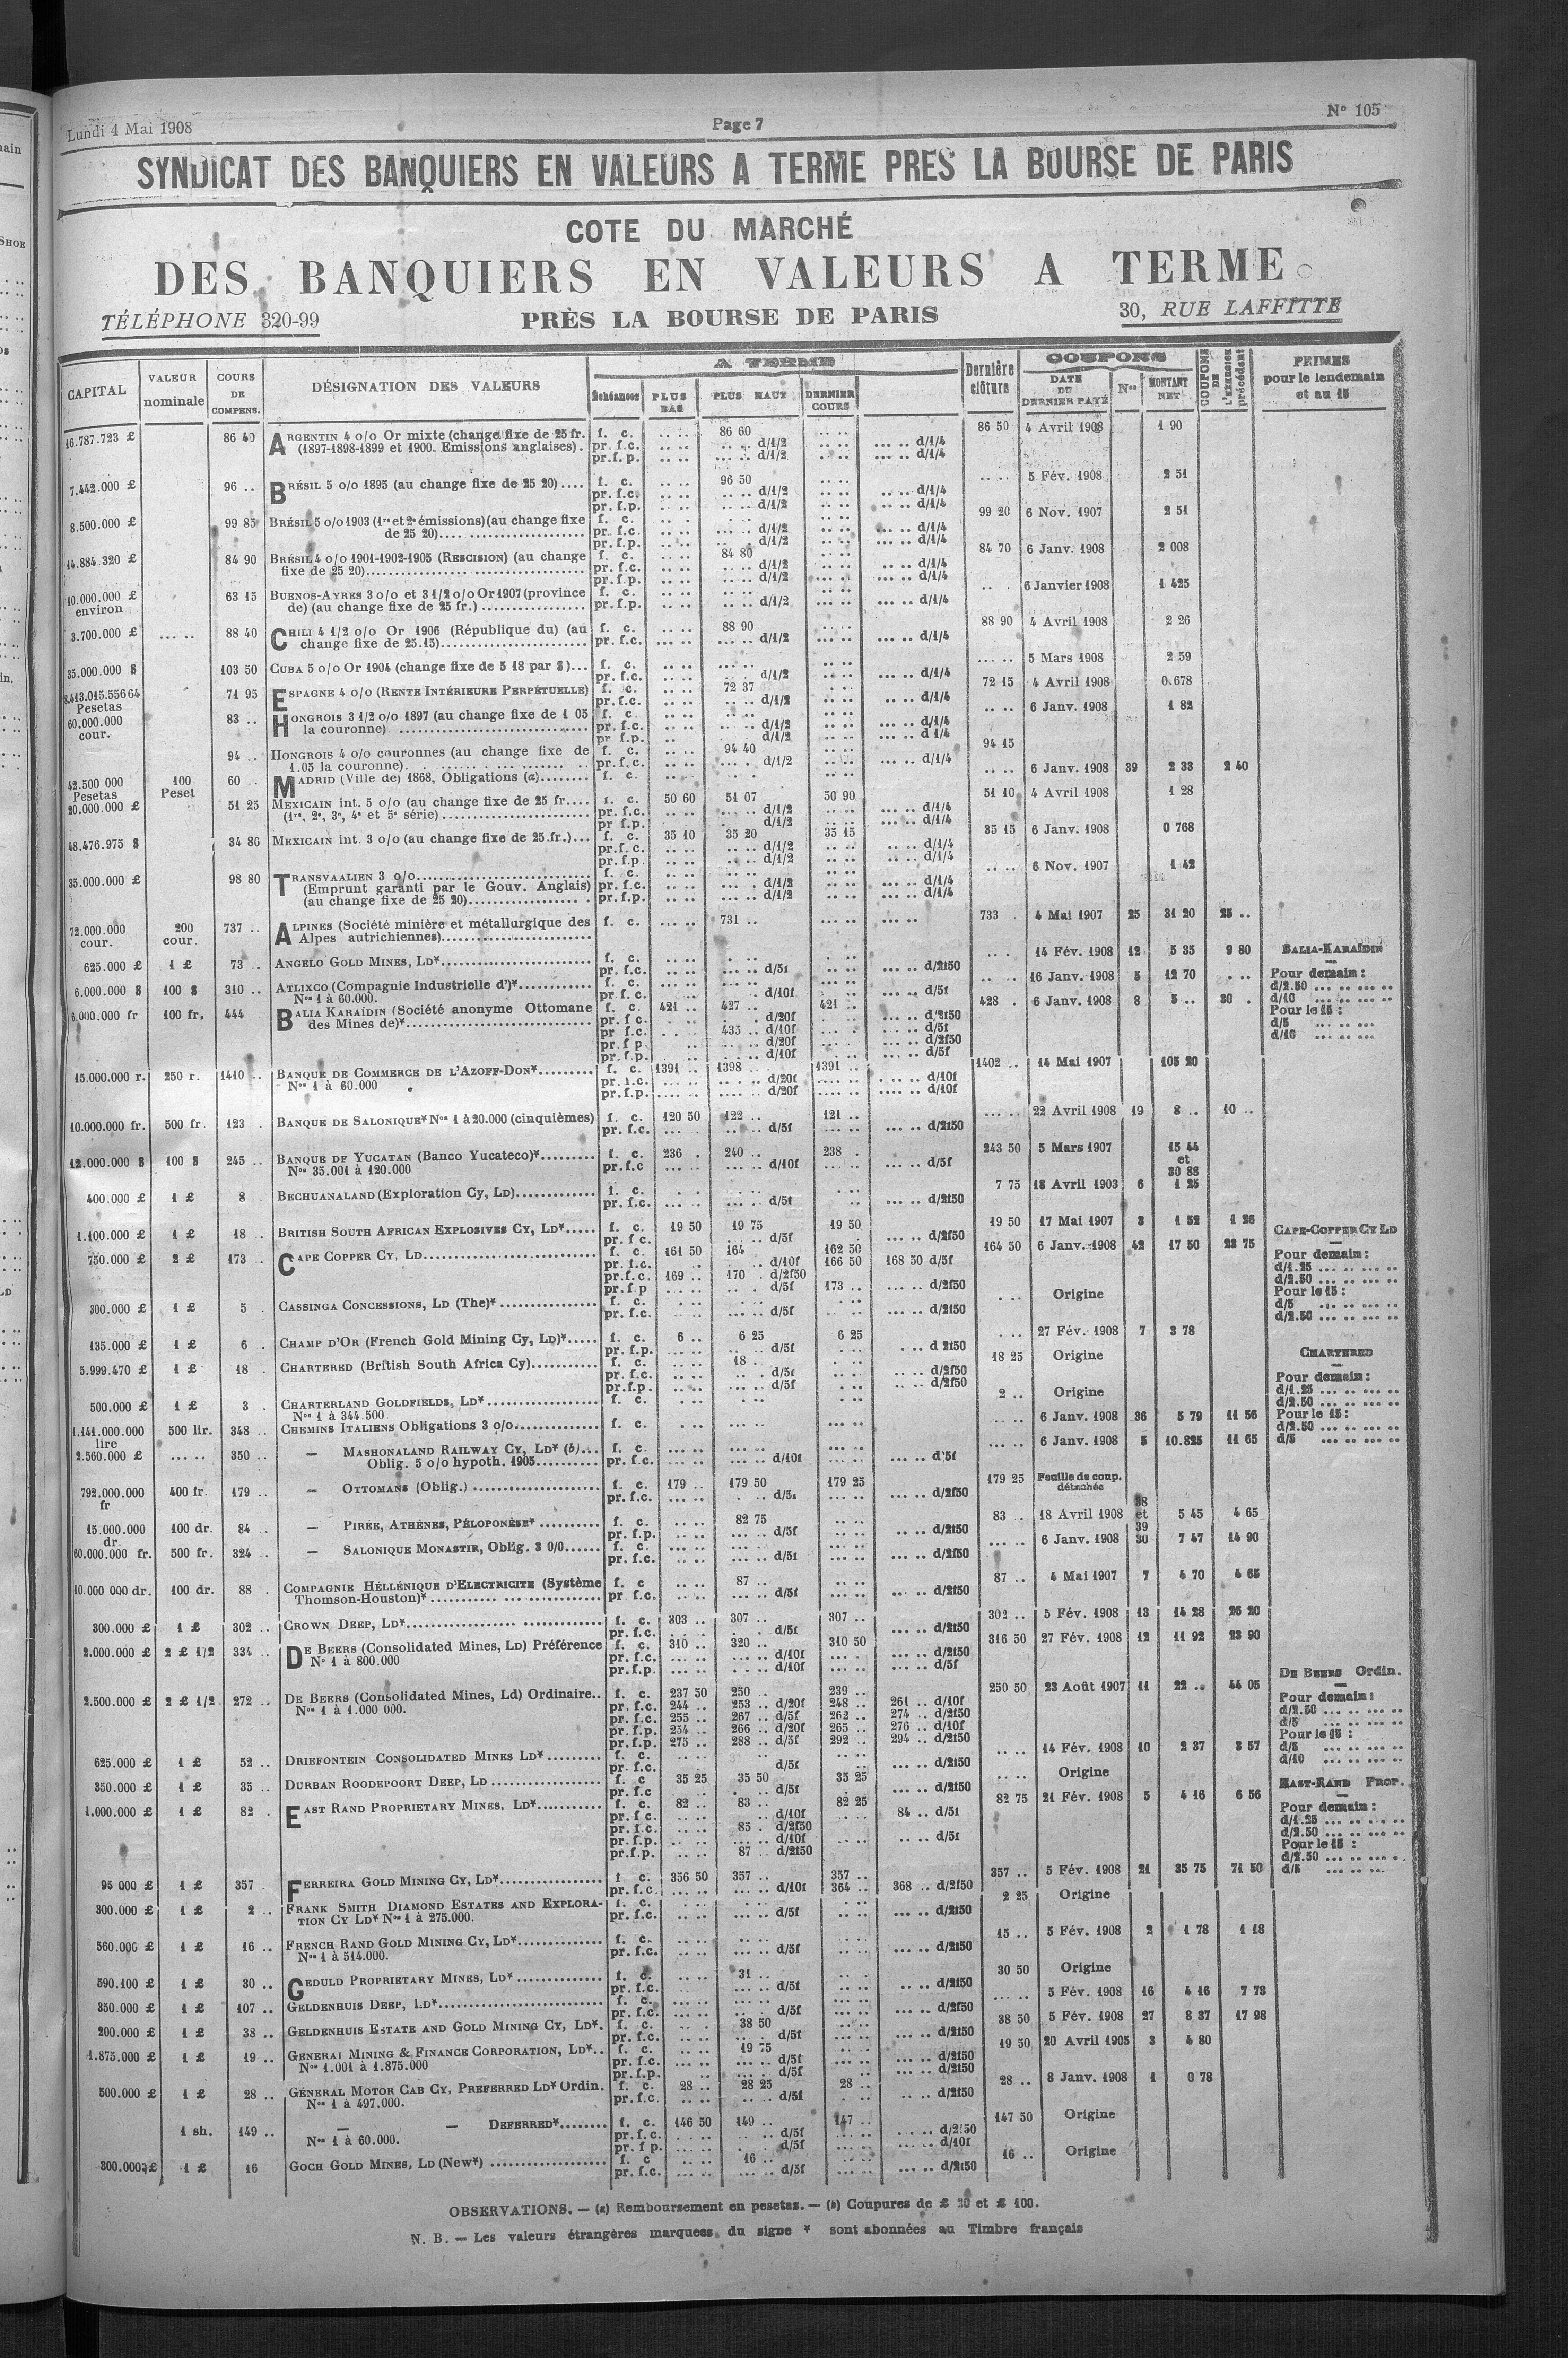 Lundi 4 Mai 1908
Page 7
N° 105
SYNDICAT DES BANQUIERS EN VALEURS A TERME PRES LA BOURSE DE PARIS
COTE DU MARCHÉ
DES BANQUIERS EN VALEURS A TERME
TÉLÉPHONE 320-99
PRÈS LA BOURSE DE PARIS
30, RUE LAFFITTE
CAPITAL
VALEUR nominale
COURS DE COMPENS.
DÉSIGNATION DES VALEURS
A TERME
Échéances
PLUS BAS
PLUS HAUT
DERNIER COURS
Dernière clôture
COUPONS
DATE DU DERNIER PAYÉ
Nos
MONTANT NET
COUPONS DE L'EXERCICE précédent
PRIMES pour le lendemain et au 15
16.787.723 £ 86 40 ARGENTIN 4 o/o Or mixte (change fixe de 25 fr. f. c. 86 60 86 50 4 Avril 1908 1 90
(1897-1898-1899 et 1900. Emissions anglaises). pr. f.c. d/1/2 d/1/4
pr.f.p. d/1/2 d/1/4
7.442.000 £ 96 .. BRÉSIL 5 o/o 1895 (au change fixe de 25 20).... f. c. 96 50 5 Fév. 1908 2 51
pr. f.c. d/1/2 d/1/4
pr. f.p. d/1/2 d/1/4
8.500.000 £ 99 85 BRÉSIL 5 o/o 1903 (1re et 2e émissions) (au change fixe f. c. 99 20 6 Nov. 1907 2 51
de 25 20) pr. f.c. d/1/2 d/1/4
pr. f.p. d/1/2 d/1/4
14.884.320 £ 84 90 BRÉSIL 4 o/o 1901-1902-1905 (RESCISION) (au change f. c. 84 80 84 70 6 Janv. 1908 2 008
fixe de 25 20) pr. f.c. d/1/2 d/1/4
pr. f.p. d/1/2 d/1/4
10.000.000 £ environ 63 15 BUENOS-AYRES 3 o/o et 3 1/2 o/o Or 1907 (province f. c. 6 Janvier 1908 1 425
de) (au change fixe de 25 fr.) pr. f.p. d/1/2 d/1/4
3.700.000 £ 88 40 CHILI 4 1/2 o/o Or 1906 (République du) (au f. c. 88 90 88 90 4 Avril 1908 2 26
change fixe de 25.15) pr. f.c. d/1/2 d/1/4
35.000.000 $ 103 50 CUBA 5 o/o Or 1904 (change fixe de 5 18 par $)... f. c. 5 Mars 1908 2 59
pr. f.c. d/1/2 d/1/4
Pesetas 71 95 ESPAGNE 4 o/o (RENTE INTÉRIEURE PERPÉTUELLE) f. c. 72 37 72 15 4 Avril 1908 0.678
pr. f.c. d/1/2 d/1/4
60.000.000 cour. 83 .. HONGROIS 3 1/2 o/o 1897 (au change fixe de 1 05 f. c. 6 Janv. 1908 1 82
la couronne) pr. f.c. d/1/2 d/1/4
pr f.p. d/1/2 d 1/4
94 .. HONGROIS 4 o/o couronnes (au change fixe de f. c. 94 40 94 15
1.05 la couronne) pr. f.c. d/1/2 d/1/4
42.500 000 Pesetas 100 Peset 60 .. MADRID (Ville de) 1868, Obligations (a) f. c. 6 Janv. 1908 39 2 33 2 40
20.000.000 £ 51 25 MEXICAIN int. 5 o/o (au change fixe de 25 fr.... f. c. 50 60 51 07 50 90 51 10 4 Avril 1908 1 28
(1re, 2e, 3e, 4e et 5e série) pr. f.c. d/1/2 d/1/4
pr f.p. d/1/2 d/1/4
48.476.975 $ 34 80 MEXICAIN int. 3 o/o (au change fixe de 25 fr.)... f. c. 35 10 35 20 35 15 35 15 6 Janv. 1908 0 768
pr.f.c. d/1/2 d/1/4
pr. f.p d/1/2 d/1/4
35.000.000 £ 98 80 TRANSVAALIEN 3 o/o f. c. 6 Nov. 1907 1 42
(Emprunt garanti par le Gouv. Anglais) pr. f.c. d/1/2 d/1/4
(au change fixe de 25 20) pr. f.p. d/1/2 d/1/4
72.000.000 cour. 200 cour. 737 .. ALPINES (Société minière et métallurgique des f. c. 731 .. 733 . 4 Mai 1907 25 31 20 25 ..
Alpes autrichiennes)
625.000 £ 1 £ 73 .. ANGELO GOLD MINES, LD* f. c. 14 Fév. 1908 12 5 35 9 80
pr. f.c. d/5f d/2f50
6.000.000 $ 100 $ 310 .. ATLIXCO (Compagnie Industrielle d')* f. c. 16 Janv. 1908 5 12 70
Nos 1 à 60.000. pr. f.c. d/10f d/5f
6.000.000 fr 100 fr. 444 BALIA KARAÏDIN (Société anonyme Ottomane f. c. 421 .. 427 .. 421 .. 428 . 6 Janv. 1908 8 5 .. 30 .
des Mines de)* pr. f c. d/20f d/2f50
pr f.c. 435 .. d/10f d/5f
pr. f p. d/20f d/2f50
pr. f.p. d/10f d/5f
BALIA-KARAÏDIN
Pour demain :
d/2.50
d/10
Pour le 15 :
d/5
d/10
15.000.000 r. 250 r. 1410 .. BANQUE DE COMMERCE DE L'AZOFF-DON* f. c. 1391 .. 1398 .. 1391 .. 1402 .. 14 Mai 1907 105 20
Nos 1 à 60.000 pr. f.c. d/20f d/10f
pr. f.p. d/20f d/10f
10.000.000 fr. 500 fr. 123 . BANQUE DE SALONIQUE* Nos 1 à 20.000 (cinquièmes) f. c. 120 50 122 .. 121 .. 22 Avril 1908 19 8 .. 10 ..
pr. f.c. d/5f d/2f50
12.000.000 $ 100 $ 245 .. BANQUE DE YUCATAN (Banco Yucateco)* f. c. 236 . 240 .. 238 . 243 50 5 Mars 1907 15 44 et 30 88
Nos 35.001 à 120.000 pr.f.c d/10f d/5f
400.000 £ 1 £ 8 BECHUANALAND (Exploration Cy, LD) f. c. 7 75 18 Avril 1903 6 1 25
pr. f.c. d/5f d/2f50
1.100.000 £ 1 £ 18 .. BRITISH SOUTH AFRICAN EXPLOSIVES CY, LD* f. c. 19 50 19 75 19 50 19 50 17 Mai 1907 3 1 52 1 26
pr. f c. d/5f d/2f50
750.000 £ 2 £ 173 .. CAPE COPPER CY, LD f. c. 161 50 164 162 50 164 50 6 Janv. 1908 42 17 50 23 75
pr. f.c. d/10f 166 50 168 50 d/5f
pr.f.c. 169 .. 170 . d/2f50
pr. f.p d/5f 173 .. d/2f50
CAPE-COPPER CY LD
Pour demain :
d/1.25
d/2.50
Pour le 15 :
d/5
d/2.50
300.000 £ 1 £ 5 . CASSINGA CONCESSIONS, LD (The)* f. c. Origine
pr. f.c. d/5f d/2f50
135.000 £ 1 £ 6 . CHAMP D'OR (French Gold Mining Cy, LD)* f. c. 6 .. 6 25 6 25 27 Fév. 1908 7 3 78
pr. f.p. d/5f d 2f50
5.999.470 £ 1 £ 18 . CHARTERED (British South Africa Cy) f. c. 18 . 18 25 Origine
pr. f.c. d/5f d/2f50
pr.f.p. d/5f d/2f50
CHARTERED
Pour demain :
d/1.25
d/2.50
Pour le 15 :
d/2.50
d/5
500.000 £ 1 £ 3 . CHARTERLAND GOLDFIELDS, LD* f. c. 2 .. Origine
Nos 1 à 344.500.
1.141.000.000 lire 500 lir. 348 .. CHEMINS ITALIENS Obligations 3 o/o f. c. 6 Janv. 1908 36 5 79 11 56
2.560.000 £ 350 .. — MASHONALAND RAILWAY CY, LD* (b)... f. c. 6 Janv. 1908 5 10.825 11 65
Oblig. 5 o/o hypoth. 1905 pr. f.c. d/10f d/5f
792.000.000 fr 400 fr. 179 .. — OTTOMANS (Oblig.) f. c. 179 .. 179 50 179 25 179 25 Feuille de coup. détachée
pr. f.c. d/5f d/2f50
15.000.000 dr. 100 dr. 84 .. — PIRÉE, ATHÈNES, PÉLOPONÈSE* f. c. 82 75 83 .. 18 Avril 1908 38 et 39 5 45 4 65
pr. f.p. d/5f d/2f50
60.000.000 fr. 500 fr. 324 .. — SALONIQUE MONASTIR, Oblig. 3 0/0 f. c. 6 Janv. 1908 30 7 47 14 90
pr. f.c. d/5f d/2f50
10.000 000 dr. 100 dr. 88 . COMPAGNIE HÉLLÉNIQUE D'ELECTRICITE (Système f. c 87 .. 87 .. 4 Mai 1907 7 4 70 4 65
Thomson-Houston)* pr f.c. d/5f d/2f50
300.000 £ 1 £ 302 .. CROWN DEEP, LD* f. c. 303 .. 307 .. 307 .. 302 .. 5 Fév. 1908 13 14 28 26 20
pr. f.c. d/5f d/2f50
2.000.000 £ 2 £ 1/2 334 .. DE BEERS (Consolidated Mines, LD) Préférence f. c. 310 .. 320 .. 310 50 316 50 27 Fév. 1908 12 11 92 23 90
N° 1 à 800.000 pr. f.c. d/10f d/2f50
pr. f.p. d/10f d/5f
2.500.000 £ 2 £ 1/2 272 .. DE BEERS (Consolidated Mines, Ld) Ordinaire.. f. c. 237 50 250 .. 239 .. 250 50 23 Août 1907 11 22 .. 44 05
Nos 1 à 1.000 000. pr. f.c. 244 .. 253 .. d/20f 248 .. 261 .. d/10f
pr. f.c. 255 .. 267 .. d/5f 262 .. 274 .. d/2f50
pr. f.p. 254 .. 266 .. d/20f 265 .. 276 .. d/10f
pr. f.p. 275 .. 288 .. d/5f 292 .. 294 .. d/2f50
DE BEERS Ordin.
Pour demain :
d/2.50
d/5
Pour le 15 :
d/5
d/10
625.000 £ 1 £ 52 .. DRIEFONTEIN CONSOLIDATED MINES LD* f. c. 14 Fév. 1908 10 2 37 3 57
pr. f.c. d/5f d/2f50
350.000 £ 1 £ 35 .. DURBAN ROODEPOORT DEEP, LD f. c 35 25 35 50 35 25 Origine
pr. f.c d/5f d/2f50
1.000.000 £ 1 £ 82 . EAST RAND PROPRIETARY MINES, LD* f. c. 82 .. 83 .. 82 25 82 75 21 Fév. 1908 5 4 16 6 56
pr. f.c. d/10f 84 .. d/5f
pr. f.c. 85 . d/2f50
pr. f.p. d/10f d/5f
pr.f.p. 87 .. d/2f50
EAST-RAND PROP.
Pour demain :
d/1.25
d/2.50
Pour le 15 :
d/2.50
d/5
95 000 £ 1 £ 357 . FERREIRA GOLD MINING CY, LD* f c. 356 50 357 .. 357 .. 357 .. 5 Fév. 1908 21 35 75 71 50
pr. f.c. d/10f 364 .. 368 .. d/2f50
300.000 £ 1 £ 2 .. FRANK SMITH DIAMOND ESTATES AND EXPLORA- f. c. 2 25 Origine
TION CY LD* Nos 1 à 275.000. pr. f.c. d/5f d/2f50
560.000 £ 1 £ 16 .. FRENCH RAND GOLD MINING CY, LD* f. c. 15 .. 5 Fév. 1908 2 1 78 1 18
Nos 1 à 514.000. pr. f.c. d/5f d/2f50
590.100 £ 1 £ 30 .. GEDULD PROPRIETARY MINES, LD* f. c. 31 .. 30 50 Origine
pr. f.c. d/5f d/2f50
350.000 £ 1 £ 107 .. GELDENHUIS DEEP, LD* f. c. 5 Fév. 1908 16 4 16 7 73
pr. f.c. d/5f d/2f50
200.000 £ 1 £ 38 .. GELDENHUIS ESTATE AND GOLD MINING CY, LD*. f. c. 38 50 38 50 5 Fév. 1908 27 8 37 17 98
pr. f.c. d/5f d/2f50
1.875.000 £ 1 £ 19 .. GENERAL MINING & FINANCE CORPORATION, LD*.. f. c. 19 75 19 50 20 Avril 1905 3 4 80
Nos 1.001 à 1.875.000 pr. f.c. d/5f d/2f50
pr.f.p. d/5f d/2f50
500.000 £ 1 £ 28 .. GÉNÉRAL MOTOR CAB CY, PREFERRED LD* Ordin. f. c. 28 .. 28 25 28 .. 28 .. 8 Janv. 1908 1 0 78
Nos 1 à 497.000. pr. f.c. d/5f d/2f50
1 sh. 149 .. — — DEFERRED* f. c. 146 50 149 .. 147 .. 147 50 Origine
Nos 1 à 60.000. pr. f.c. d/5f d/2f50
pr. f p. d/5f d/10f
300.000 £ 1 £ 16 GOCH GOLD MINES, LD (New*) f. c 16 .. 16 .. Origine
pr. f.c. d/5f d/2f50
OBSERVATIONS. — (a) Remboursement en pesetas. — (b) Coupures de £ 20 et £ 100.
N. B. — Les valeurs étrangères marquees du signe * sont abonnées au Timbre français